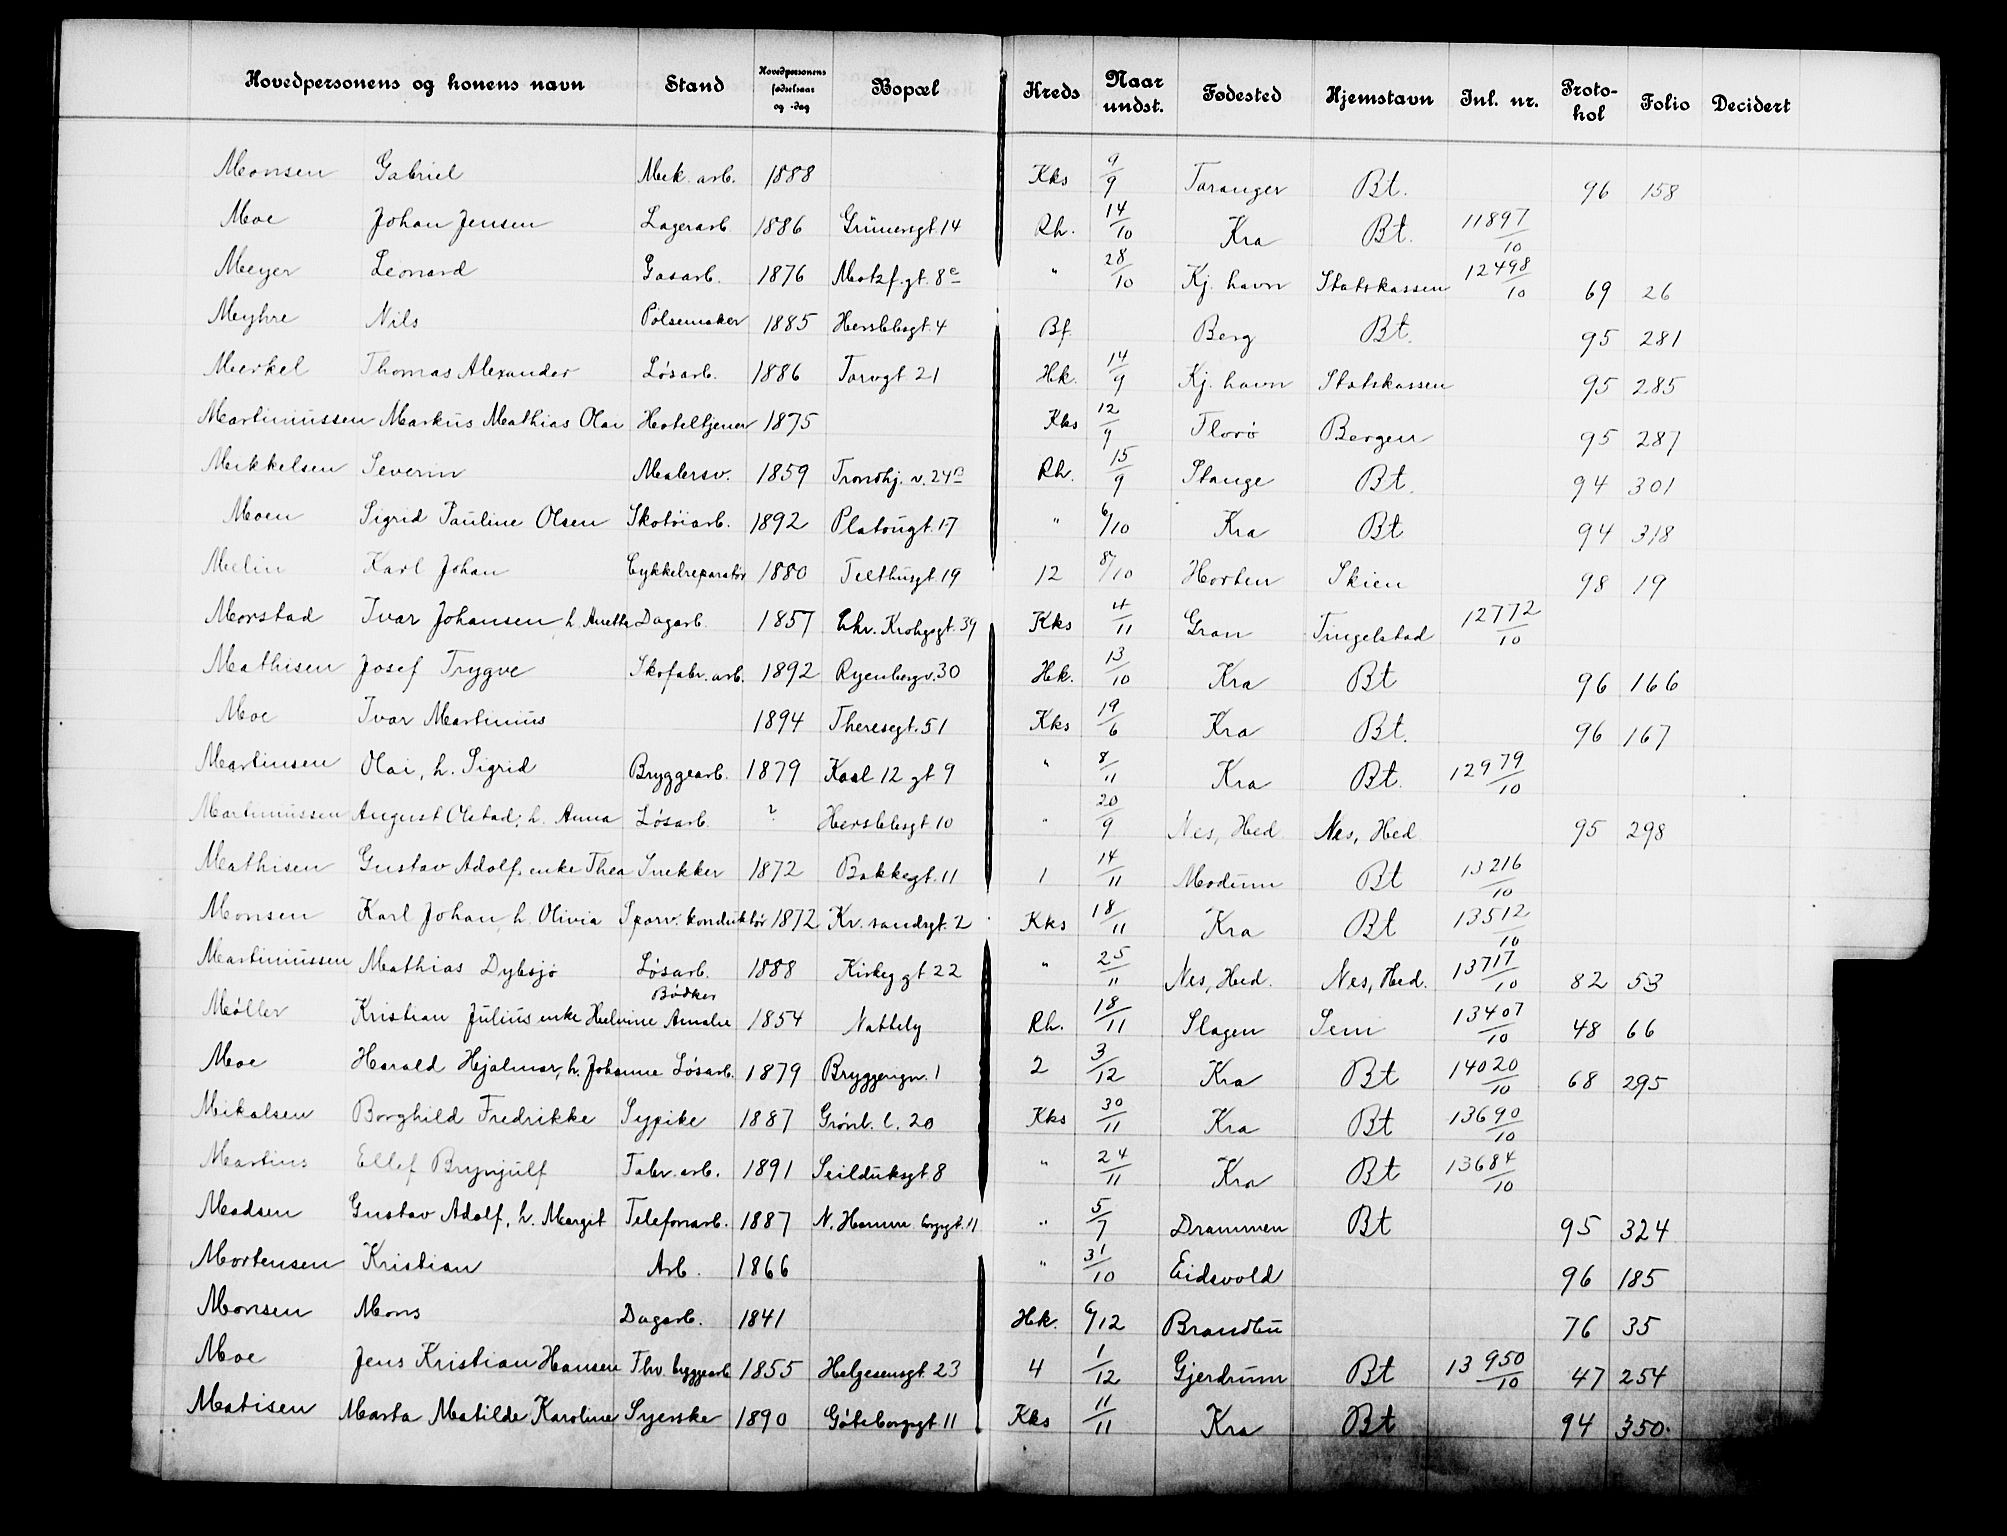 Hovedpersonens og konens navn | Stand | Hovedpersonens fødselsaar og -dag | Bopæl | Kreds | Naar undst. | Fødested | Hjemstavn | Inl. nr. | Protokol | Folio | Decidert
Monsen Gabriel | Mek. arb. | 1888 | | Kks | 9/9 | Taranger | Bt. | | 96 | 158
Moe Johan Jensen | Lagerarb. | 1886 | Grünersgt. 14 | Rh. | 14/10 | Kra | Bt. | 11897/10
Meyer Leonard | Gasarb. | 1876 | Motzf. gt. 8c | " | 28/10 | Kj. havn | Statskassen | 12498/10 | 69 | 26
Myhre Nils | Pølsemaker | 1885 | Herslebsgt. 4 | Bf. | | Berg | Bt. | | 95 | 281
Merkel Thomas Alexander | Løsarb. | 1886 | Torvgt. 21 | Hk. | 14/9 | Kj. havn | Statskassen | | 95 | 285
Martiniussen Markus Mathias Olai | Hoteltjener | 1875 | | Kks | 12/9 | Florø | Bergen | | 95 | 287
Mikkelsen Severin | Malersv. | 1859 | Trondhj. v. 24B | Rh. | 15/9 | Stange | Bt. | | 94 | 301
Moen Sigrid Pauline Olsen | Skotøiarb. | 1892 | Platougt. 17 | " | 6/10 | Kra | Bt | | 94 | 318
Melin Karl Johan | Cykkelreparatør | 1880 | Telthusgt 19 | 12 | 8/10 | Horten | Skien | | 98 | 19
Morstad Ivar Johansen, h. Anette | Dagarb. | 1857 | Chr. Krohgsgt. 39 | Kks | 4/11 | Gran | Tingelstad | 12772/10
Mathisen Josef Trygve | Skofabr. arb. | 1892 | Ryenbergv. 30 | Hk. | 13/10 | Kra | Bt | | 96 | 166
Moe Ivar Martinius | | 1894 | Theresegt. 51 | Kks | 19/6 | Kra | Bt. | | 96 | 167
Martinsen Olai, h. Sigrid | Bryggearb. | 1879 | Karl 12 gt 9 | " | 8/11 | Kra | Bt. | 12979/10
Martiniussen August Olstad, h. Anna | Løsarb. | ? | Herslebsgt. 10 | " | 20/9 | Nes, Hed | Nes, Hed | | 95 | 298
Mathisen Gustav Adolf, enke Thea | Snekker | 1872 | Bakkegt. 11 | 1 | 14/11 | Modum | Bt | 13216/10
Monsen Karl Johan, h. Olivia | Sporv. konduktør | 1872 | Kr. sandsgt. 2 | Kks | 18/11 | Kra | Bt | 13512/10
Martiniussen Mathias Dybsjø | Løsarb. | 1888 | Kirkeggt 22 | " | 25/11 | Nes, Hed. | Nes, Hed. | 13717/10 | 82 | 53
Møller Kristian Julius enke Helvine Amalie | Bødker | 1854 | Nattely | Rh. | 18/11 | Slagen | Sem | 13407/10 | 48 | 66
Moe Harald Hjalmar, h. Johanne | Løsarb. | 1879 | Bryggengv. 1 | 2 | 3/12 | Kra | Bt | 14020/10 | 68 | 295
Mikalsen Borghild Fredrikke | Sypike | 1887 | Grønl. l. 20 | Kks | 30/11 | Kra | Bt | 13690/10
Martins Ellef Brynjulf | Fabr. arb. | 1891 | Seilduksgt. 8 | " | 24/11 | Kra | Bt | 13684/10
Madsen Gustav Adolf, h. Margit | Telefonarb. | 1887 | N. Hamm. borggt. 11 | " | 5/7 | Drammen | Bt | | 95 | 324
Mortensen Kristian | Arb. | 1866 | | " | 31/10 | Eidsvold | | | 96 | 185
Monsen Mons | Dagarb. | 1841 | | Hk. | 6/12 | Brandbu | | | 76 | 35
Moe Jens Kristian Hansen | Thv. byggearb | 1855 | Helgesensgt. 23 | 4 | 1/12 | Gjerdrum | Bt | 13950/10 | 47 | 254
Matisen Marta Matilde Karoline | Syerske | 1890 | Gøteborggt 11 | Kks | 11/11 | Kra | Bt | | 94 | 350